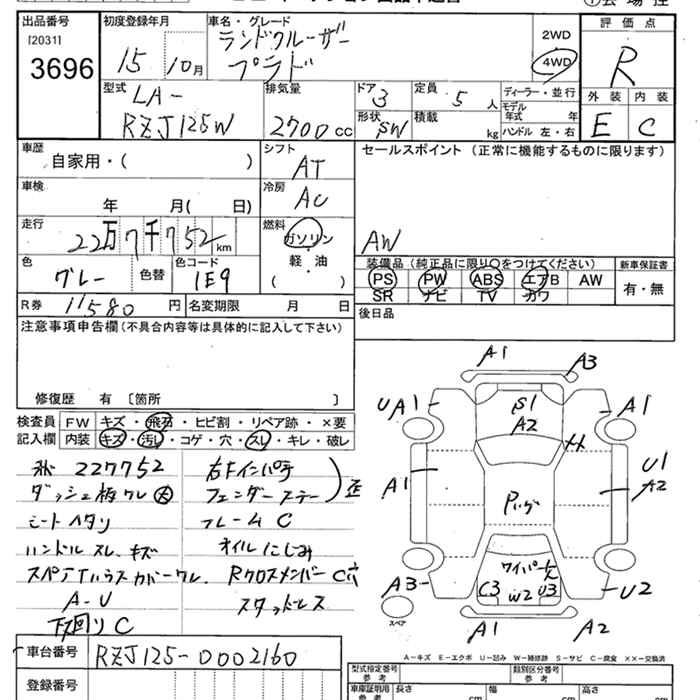 出品番号
[2031]
3696
初度登録年月
15 10月
車名・グレード
ランドクルーザー
プラド
2WD
4WD
評価点
R
外装 内装
E C
型式
LA-
RZJ125W
排気量
2700cc
ドア 3
形状 SW
定員 5 人
積載 kg
ディーラー・並行
モデル年式 年
ハンドル 左・右
車歴
自家用・( )
シフト
AT
セールスポイント (正常に機能するものに限ります)
AW
車検
年 月( 日)
冷房
AC
走行
22万7千752km
燃料
ガソリン
・
軽・油
( )
色
グレー
色替
色コード
1E9
装備品 (純正品に限り○をつけてください)
PS PW ABS エアB AW
SR ナビ TV カワ
新車保証書
有・無
R券 11580 円
名変期限 月 日
後日品
注意事項申告欄(不具合内容等は具体的に記入して下さい)
修復歴 有 〔箇所 〕
検査員
記入欄
FW キズ・飛石・ヒビ割・リペア跡・×要
内装 キズ・汚レ・コゲ・穴・スレ・キレ・破レ
227752
ダッシュ板ワレ 大
シートヘタリ
ハンドルスレ、キズ
スペアTハウスカバーワレ、
A-U
下廻りC
右Fインパネ
フェンダーステー
歪
フレームC
オイルにじみ
RクロスメンバーC穴
スタッドレス
車台番号
RZJ125-0002160
登録番号
A1
A3
UA1
S1
A2
A1
XX
A1
U1
A2
Pルーフ
A3
ワイパー欠
C3
W2
U3
U2
スペア
A1
A2
A-キズ E-エクボ U-凹み W-補修跡 S-サビ C-腐食 XX-交換済
型式指定番号
参考
類別区分番号
参考
車庫証明用
参考
長さ cm
幅 cm
高さ cm